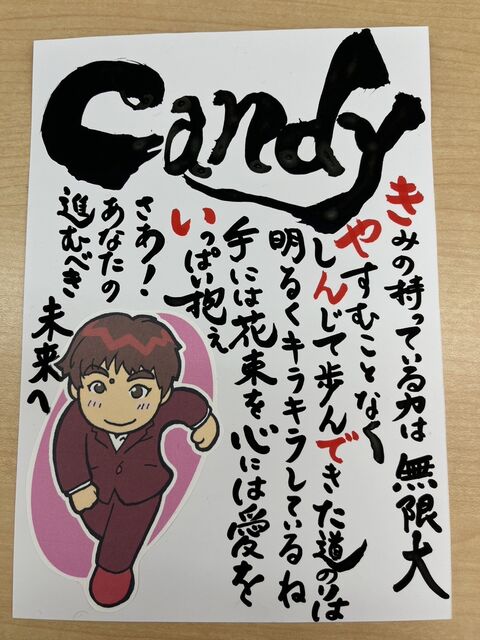 Candy
きみの持っている力は無限大
やすむことなく
しんじて歩んできた道のりは
明るくキラキラしているね
手には花束を心には愛を
いっぱい抱え
さあ！
あなたの
進むべき
未来へ